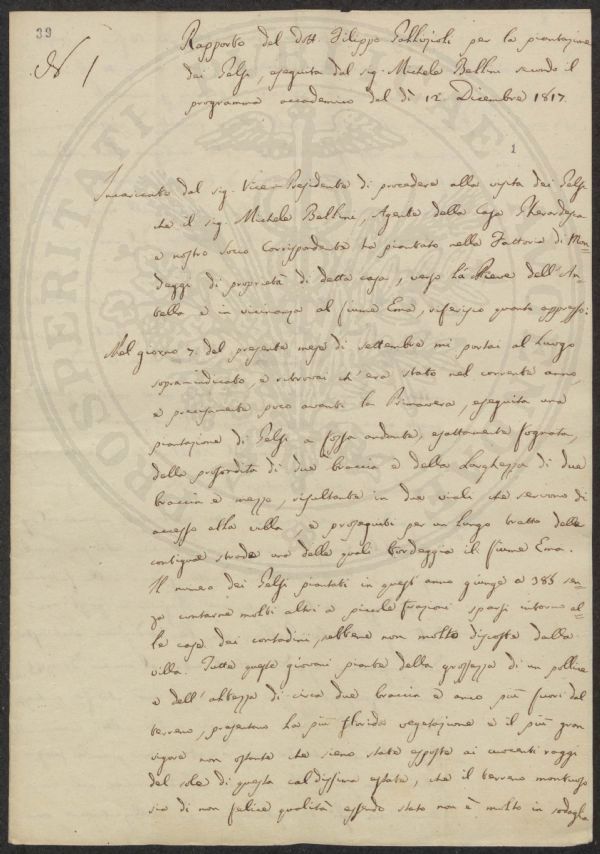 39
N 1
Rapporto del dott. Filippo Gallizioli per la piantazione
dei Gelsi, eseguita dal sig. Michele Bellini secondo il
programma accademico del dì 12 Dicembre 1817.
1
Incaricato dal sig. Vice-Presidente di procedere alla visita dei Gelsi
che il sig. Michele Bellini, Agente della Casa Gherardesca
e nostro socio corrispondente ha piantato nella Fattoria di Mon-
deggi di proprietà di detta casa, verso la Pieve dell'An-
tella e in vicinanza al fiume Ema, riferisco quanto appresso:
Nel giorno 7. del presente mese di settembre mi portai al luogo
sopraindicato, e ritrovai ch'era stata nel corrente anno,
e precisamente poco avanti la Primavera, eseguita una
piantazione di Gelsi a fossa andante, esattamente fognata,
della profondità di due braccia e della larghezza di due
braccia e mezzo, risultante in due viali che servono di
accesso alla villa, e proseguiti per un lungo tratto delle
contigue strade una delle quali bordeggia il fiume Ema.
Il numero dei Gelsi piantati in quest'anno giunge a 385 sen-
za contarne molti altri a piccole frazioni sparsi intorno al-
le case dei contadini, sebbene non molto discoste dalla
villa. Tutte queste giovani piante della grossezza di un pollice
e dell'altezza di circa due braccia e anco più fuori dal
terreno, presentano la più florida vegetazione e il più gran
vigore non ostante che sieno state esposte ai cuocenti raggi
del sole di questa caldissima estate, che il terreno montuoso
sia di non felice qualità essendo stato non è molto in sodaglia